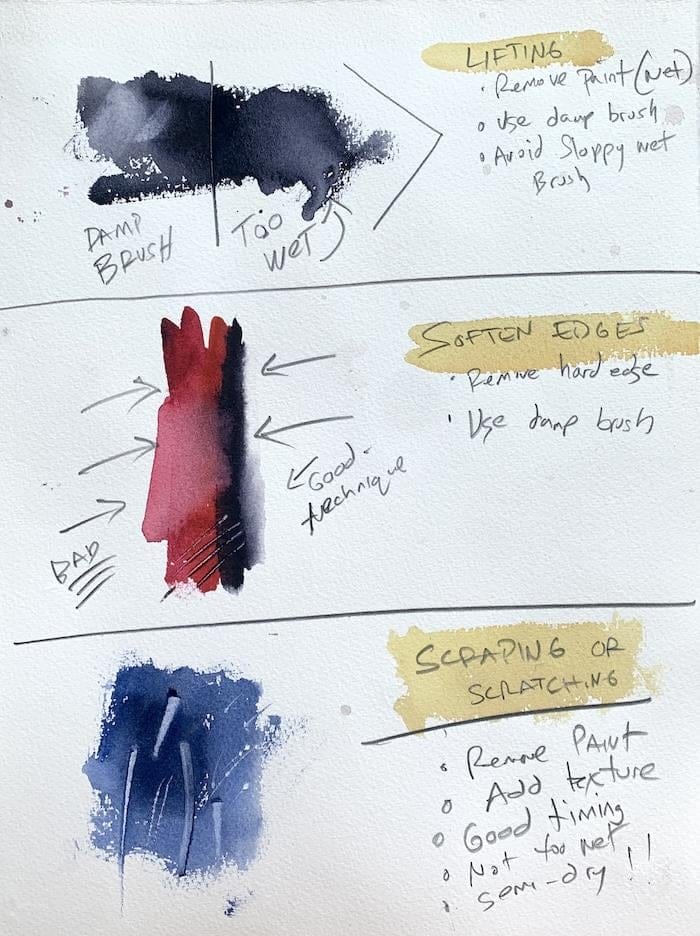 LIFTING
• Remove Paint (wet)
• Use damp brush
• Avoid Sloppy wet
Brush
DAMP
BRUSH
TOO
WET
SOFTEN EDGES
• Remove hard edge
• Use damp brush
Good
technique
BAD
SCRAPING OR
SCRATCHING
• Remove PAINT
• Add texture
• Good timing
• Not too wet
• Semi-dry !!